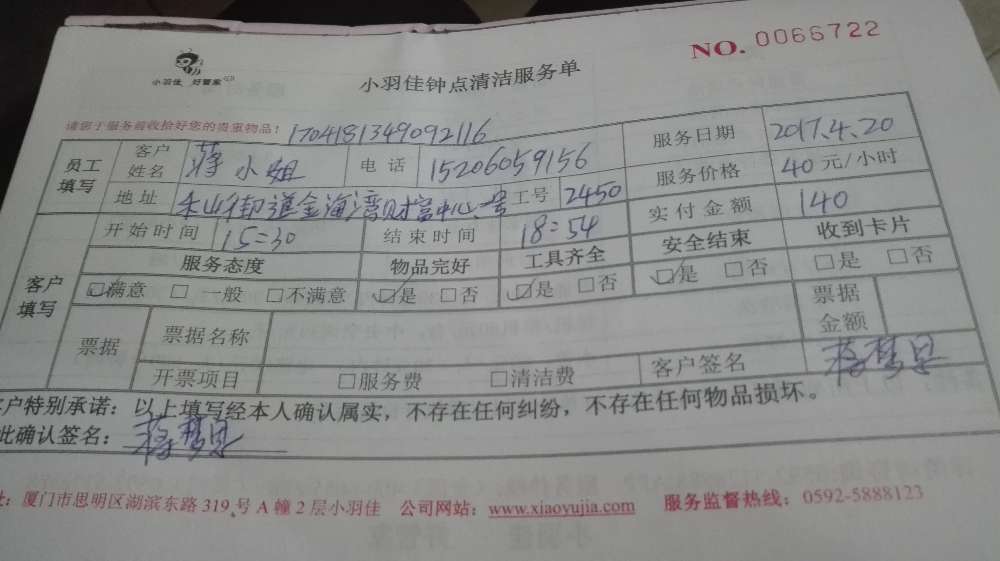 NO. 0066722
小羽佳 好管家
小羽佳钟点清洁服务单
请您于服务前收拾好您的贵重物品！ 1704181349092116
员工填写 客户姓名 蒋小姐 电话 15206059156 服务日期 2017.4.20
服务价格 40元/小时
地址 禾山街道金海湾财富中心 号 工号 2450 实付金额 140
开始时间 15:30 结束时间 18:54 安全结束 收到卡片
客户填写 服务态度 物品完好 工具齐全
☑满意 □一般 □不满意 ☑是 □否 ☑是 □否 ☑是 □否 □是 □否
票据 票据名称 票据金额
开票项目 □服务费 □清洁费 客户签名 蒋
客户特别承诺：以上填写经本人确认属实，不存在任何纠纷，不存在任何物品损坏。
此确认签名： 蒋
址：厦门市思明区湖滨东路319号A幢2层小羽佳 公司网站：www.xiaoyujia.com 服务监督热线：0592-5888123